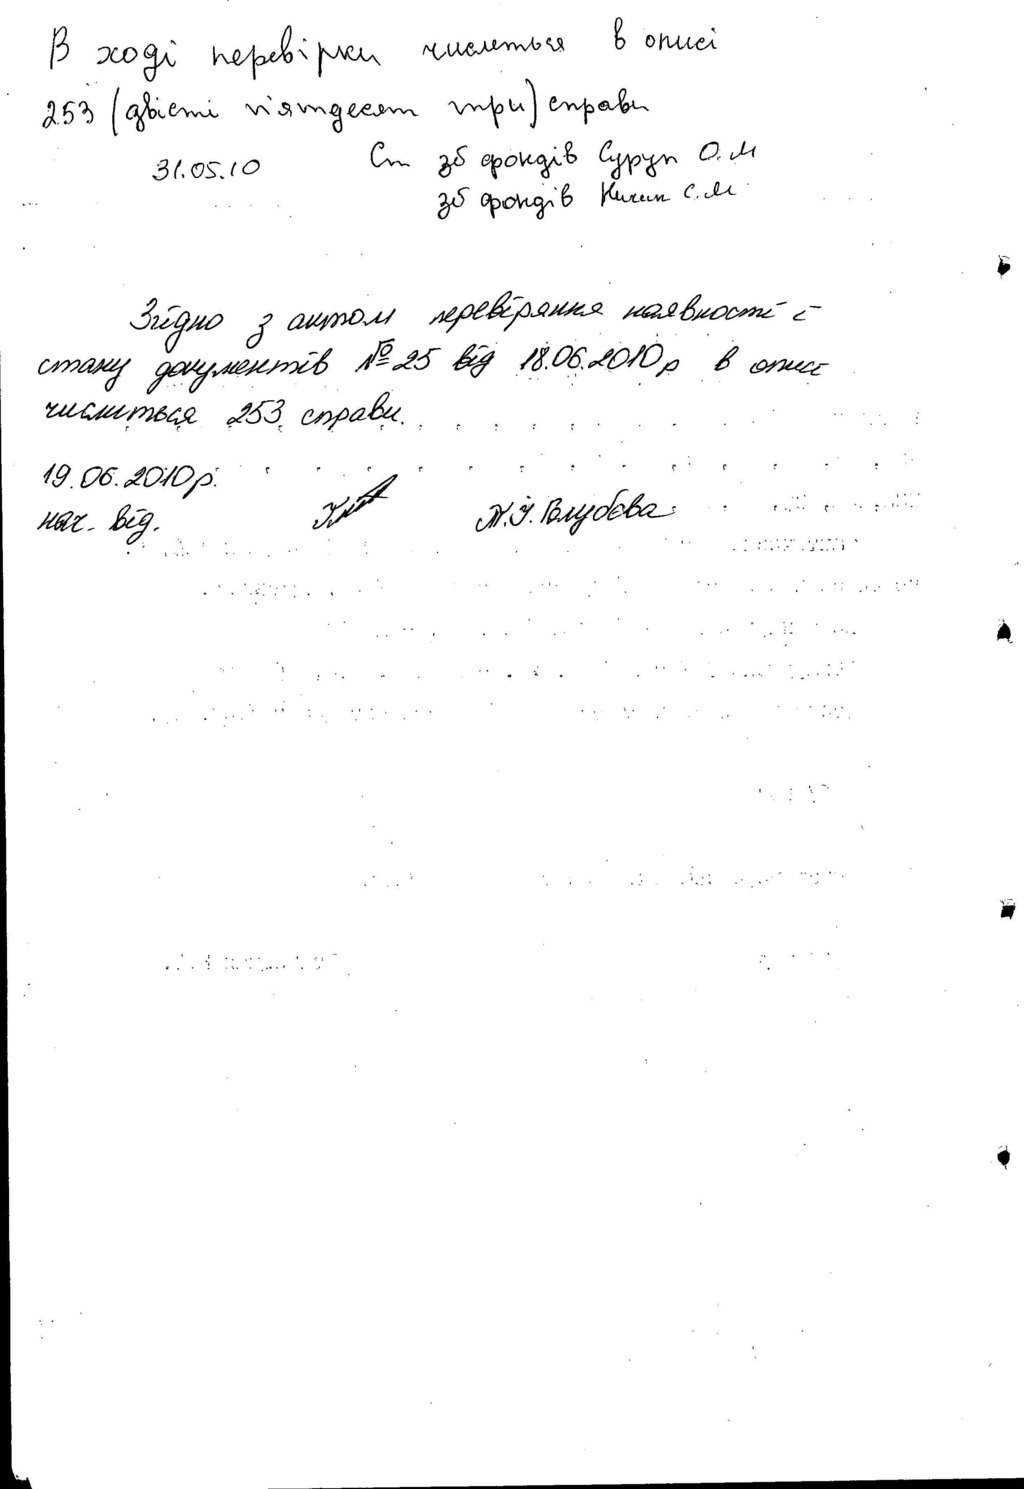 В ході перевірки числиться в описі
253 (двісті п'ятдесят три) справи
31.05.10 Ст зб фондів Суруп О.М
зб фондів С.М
Згідно з актом перевіряння наявності і
стану документів № 25 від 18.06.2010р в описі
числиться 253 справи.
19.06.2010р.
нач. від. Голубєва